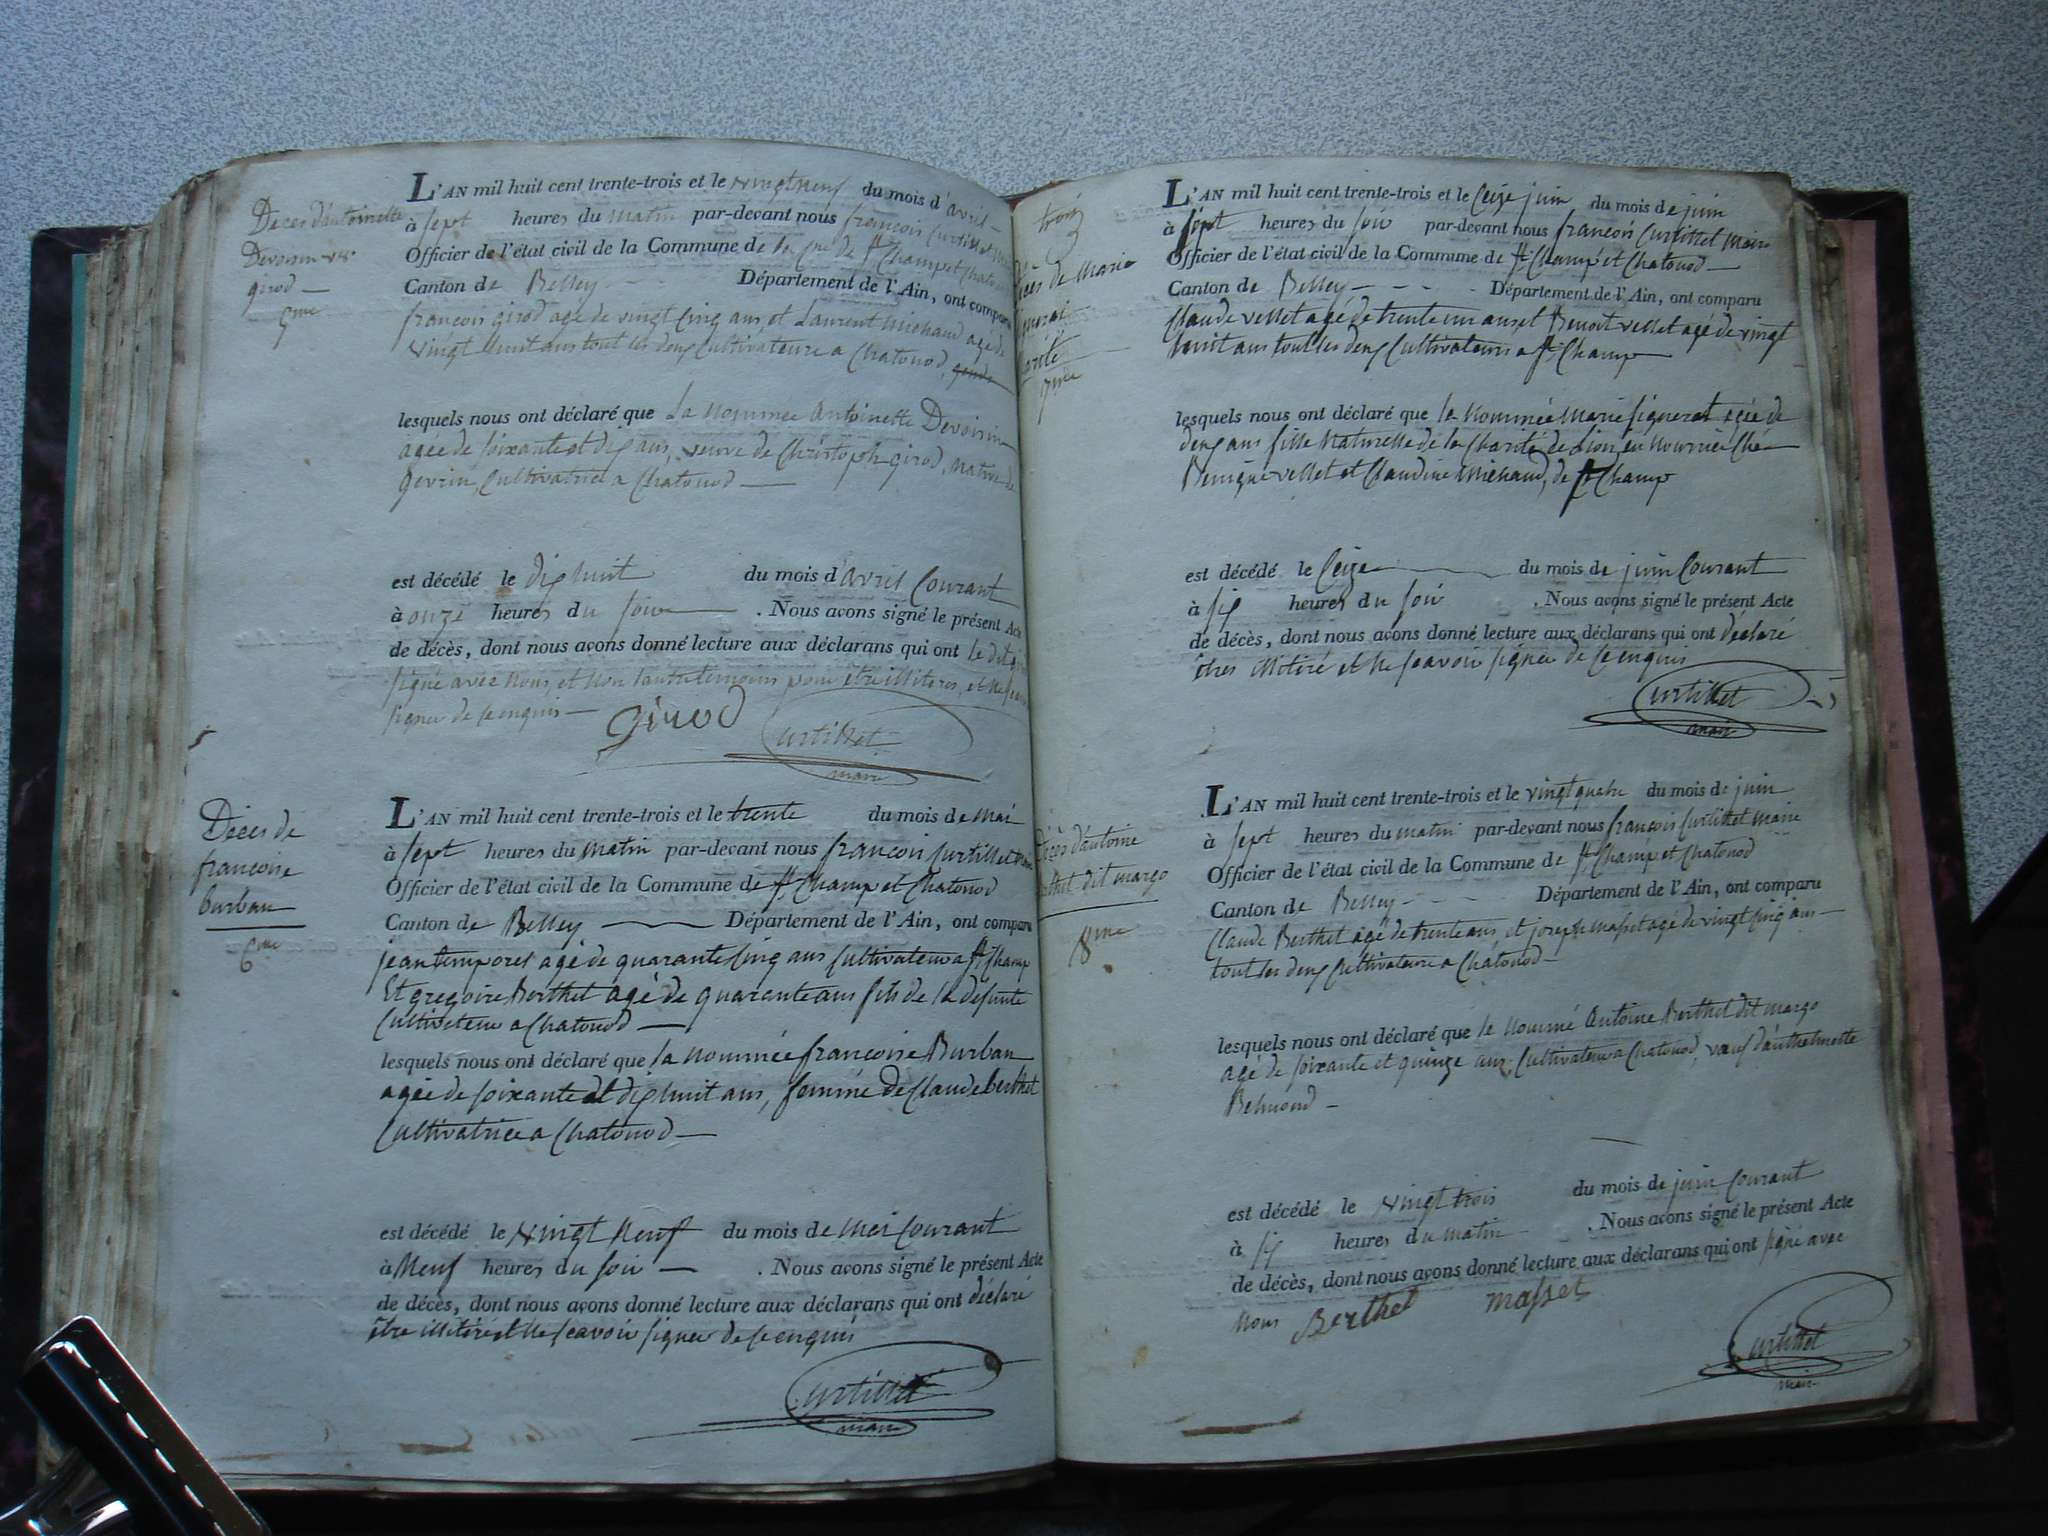 Deces d'antoinette
Devoisin
girod
5me
L'AN mil huit cent trente-trois et le vingt neuf du mois d'avril
à sept heures du matin par-devant nous francois Curtillet
Officier de l'état civil de la Commune de la Cne de St Champ et Chatonod
Canton de Belley Département de l'Ain, ont comparu
francois girod agé de vingt cinq ans, et Laurent Michaud agé de
vingt huit ans tout les deux Cultivateurs a Chatonod,
lesquels nous ont déclaré que La nommée Antoinette Devoisin
agée de soixante et dix ans, veuve de Christophe girod, native de
gevrin, Cultivatrice a Chatonod
est décédé le dix huit du mois d'avril Courant
à onze heures du soir . Nous avons signé le présent Acte
de décès, dont nous avons donné lecture aux déclarans qui ont le dit
signé avec nous, et non l'autre temoins pour etre illiteres, et ne
signer de ce enquis
girod
Curtillet
maire
Déces de
francoise
burban
6me
L'AN mil huit cent trente-trois et le trente du mois de mai
à sept heures du matin par-devant nous francois Curtillet
Officier de l'état civil de la Commune de St Champ et Chatonod
Canton de Belley Département de l'Ain, ont comparu
jean temporel agé de quarante cinq ans Cultivateur a St Champ
Et gregoire Berthet agé de quarante ans fils de la defunte
Cultivateur a Chatonod
lesquels nous ont déclaré que la nommée francoise Burban
agée de soixante et dix huit ans, femme de Claude berthet
Cultivatrice a Chatonod
est décédé le vingt neuf du mois de mai Courant
à neuf heures du soir . Nous avons signé le présent Acte
de décès, dont nous avons donné lecture aux déclarans qui ont déclaré
être illitéré et ne scavoir signer de ce enquis
Curtillet
maire
trois
décès de Marie
7me
L'AN mil huit cent trente-trois et le Ceize juin du mois de juin
à sept heures du soir par-devant nous francois Curtillet Maire
Officier de l'état civil de la Commune de St Champ et Chatonod
Canton de Belley Département de l'Ain, ont comparu
Claude vellet agé de trente un ans et Benoit vellet agé de vingt
huit ans tout les deux Cultivateurs a St Champ
lesquels nous ont déclaré que la nommée Marie signerat agée de
deux ans fille Naturelle de la Charité de Lion, en Nourrice Che
Benigne vellet et Claudine Michaud, de St Champ
est décédé le Ceize du mois de juin Courant
à six heures du soir . Nous avons signé le présent Acte
de décès, dont nous avons donné lecture aux déclarans qui ont déclaré
êtres illitiré et ne scavoir signer de ce enquis
Curtillet
maire
Décès d'antoine
berthet dit margo
8me
L'AN mil huit cent trente-trois et le vingt quatre du mois de juin
à sept heures du matin par-devant nous francois Curtillet Maire
Officier de l'état civil de la Commune de St Champ et Chatonod
Canton de Belley Département de l'Ain, ont comparu
Claude Berthet agé de trente ans et joseph Masset agé de vingt cinq ans
tout les deux Cultivateurs a Chatonod
lesquels nous ont déclaré que le nommé Antoine Berthet dit margo
agé de soixante et quinze ans, Cultivateur a Chatonod, veuf d'anthelmette
Belmond
est décédé le vingt trois du mois de juin Courant
à six heures du matin . Nous avons signé le présent Acte
de décès, dont nous avons donné lecture aux déclarans qui ont signé avec
nous Berthet masset
Curtillet
maire